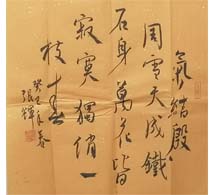 氣結殷
周雪天成鐵
石身萬花皆
寂寞獨俏一
枝春
癸巳年春
張輝